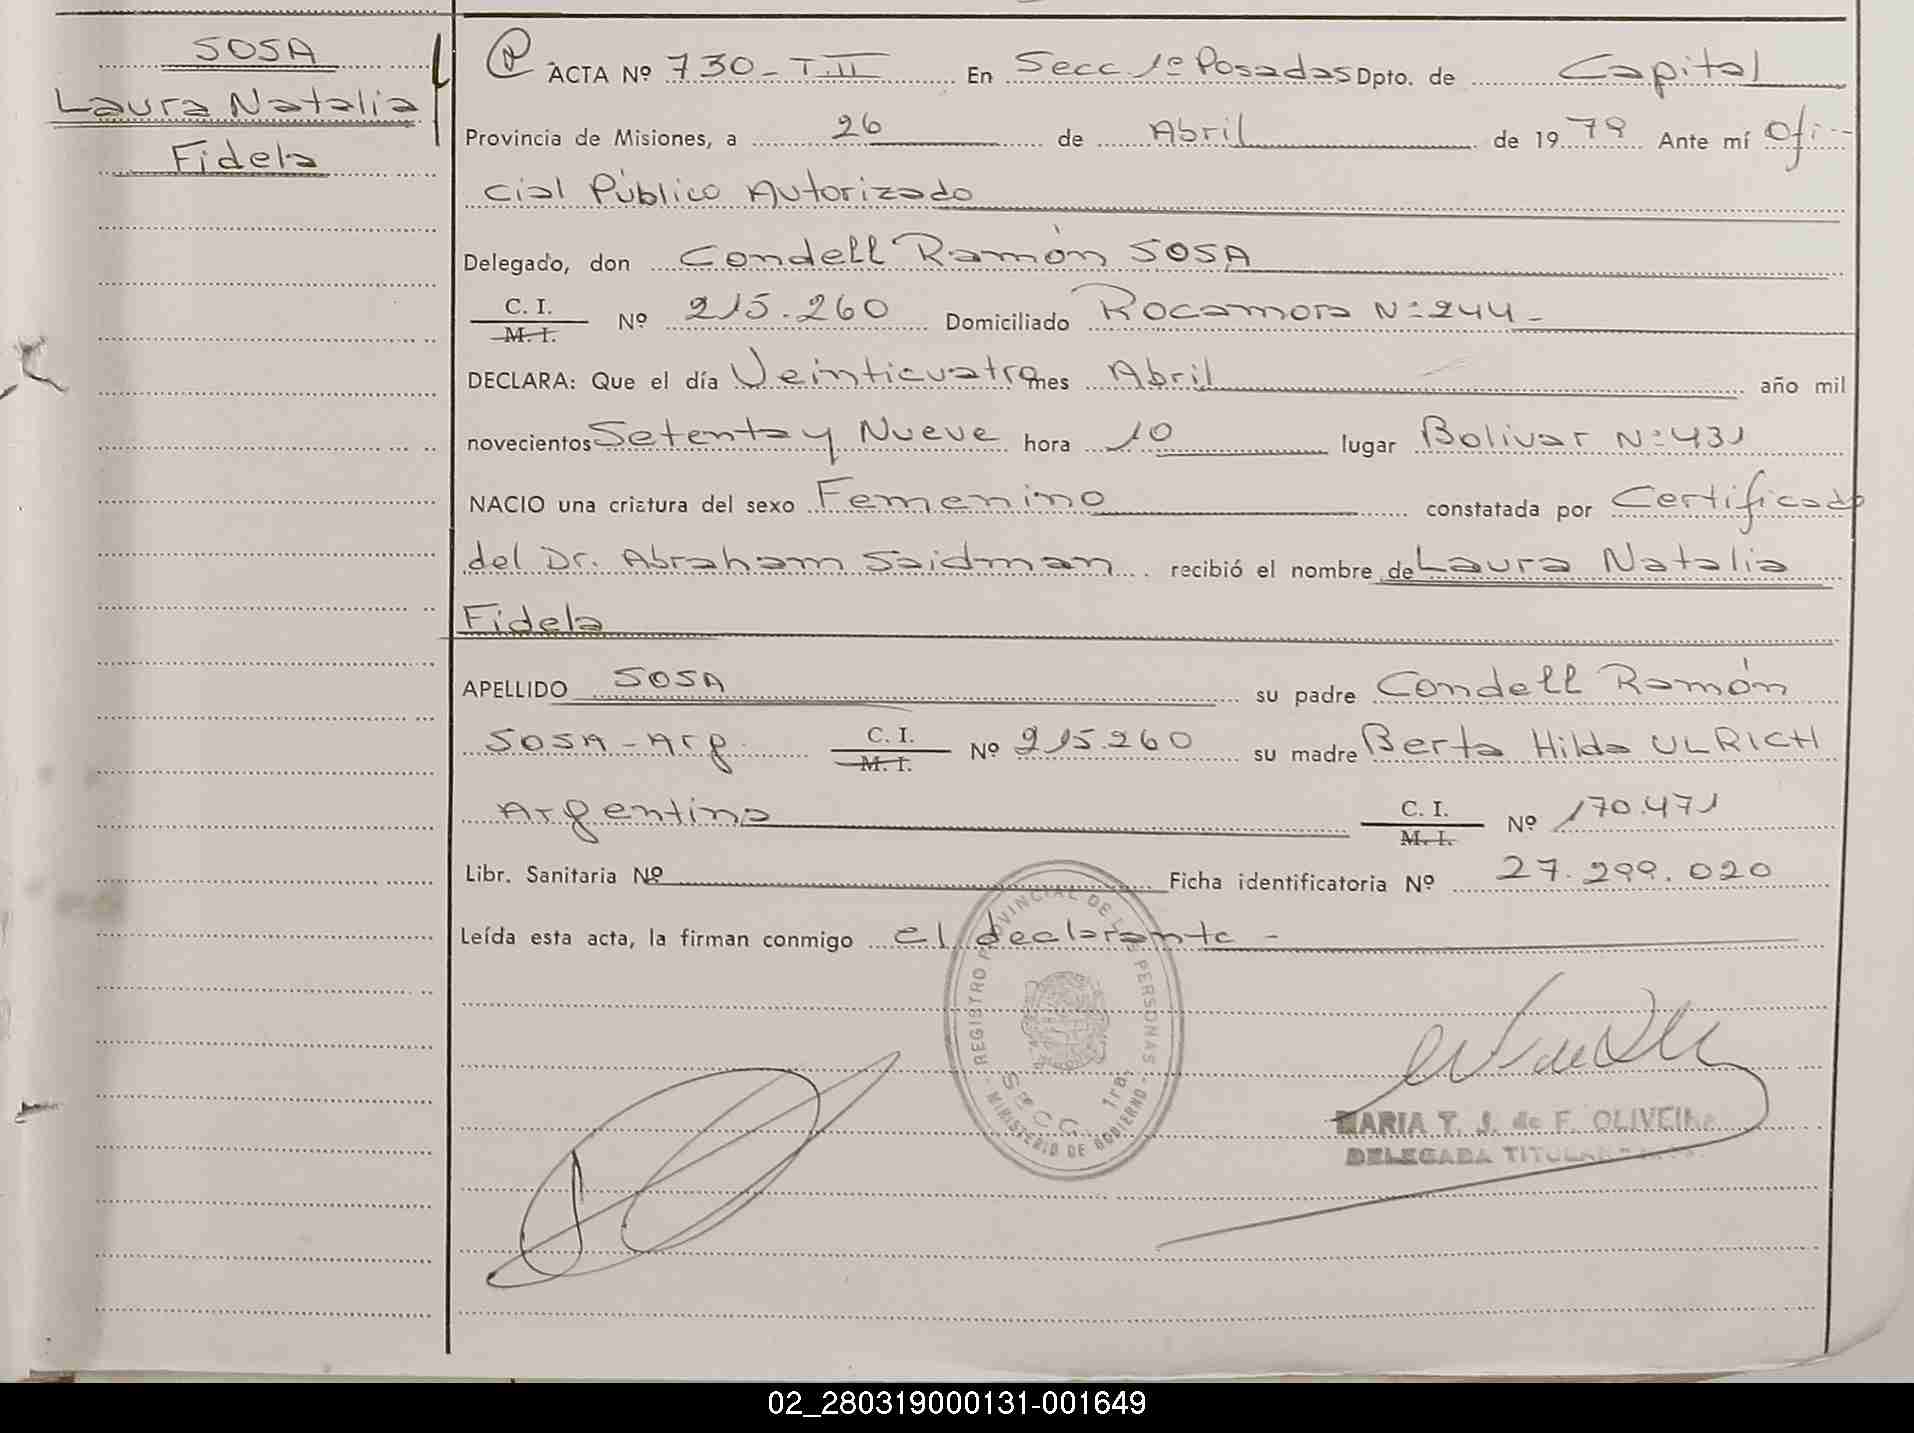 SOSA
Laura Natalia
Fidela
ACTA Nº 730-T.II En Secc 1º Posadas Dpto. de Capital
Provincia de Misiones, a 26 de Abril de 1979 Ante mí Ofi-
cial Público Autorizado
Delegado, don Condell Ramón SOSA
C. I. M. I. Nº 215.260 Domiciliado Rocamora Nº 244-
DECLARA: Que el día Veinticuatro mes Abril año mil
novecientos Setenta y Nueve hora 10 lugar Bolivar Nº 431
NACIO una criatura del sexo Femenino constatada por Certificado
del Dr. Abraham Saidman recibió el nombre de Laura Natalia
Fidela
APELLIDO SOSA su padre Condell Ramón
SOSA-Arg. C. I. M. I. Nº 215.260 su madre Berta Hilda ULRICH
Argentina C. I. M. I. Nº 170.471
Libr. Sanitaria Nº Ficha identificatoria Nº 27.299.020
Leída esta acta, la firman conmigo el declarante -
REGISTRO PROVINCIAL DE LAS PERSONAS
SECC. 1ra.
MINISTERIO DE GOBIERNO
MARIA T. J. de F. OLIVEIRA
DELEGADA TITULAR
02_280319000131-001649